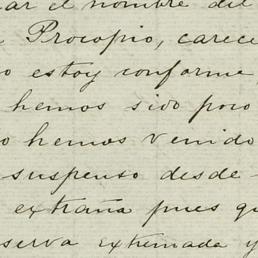 ar el nombre del
Procopio, carece
o estoy conforme
hemos sido poco
o hemos venido
suspenso desde
extraña pues qu
serva extremada y